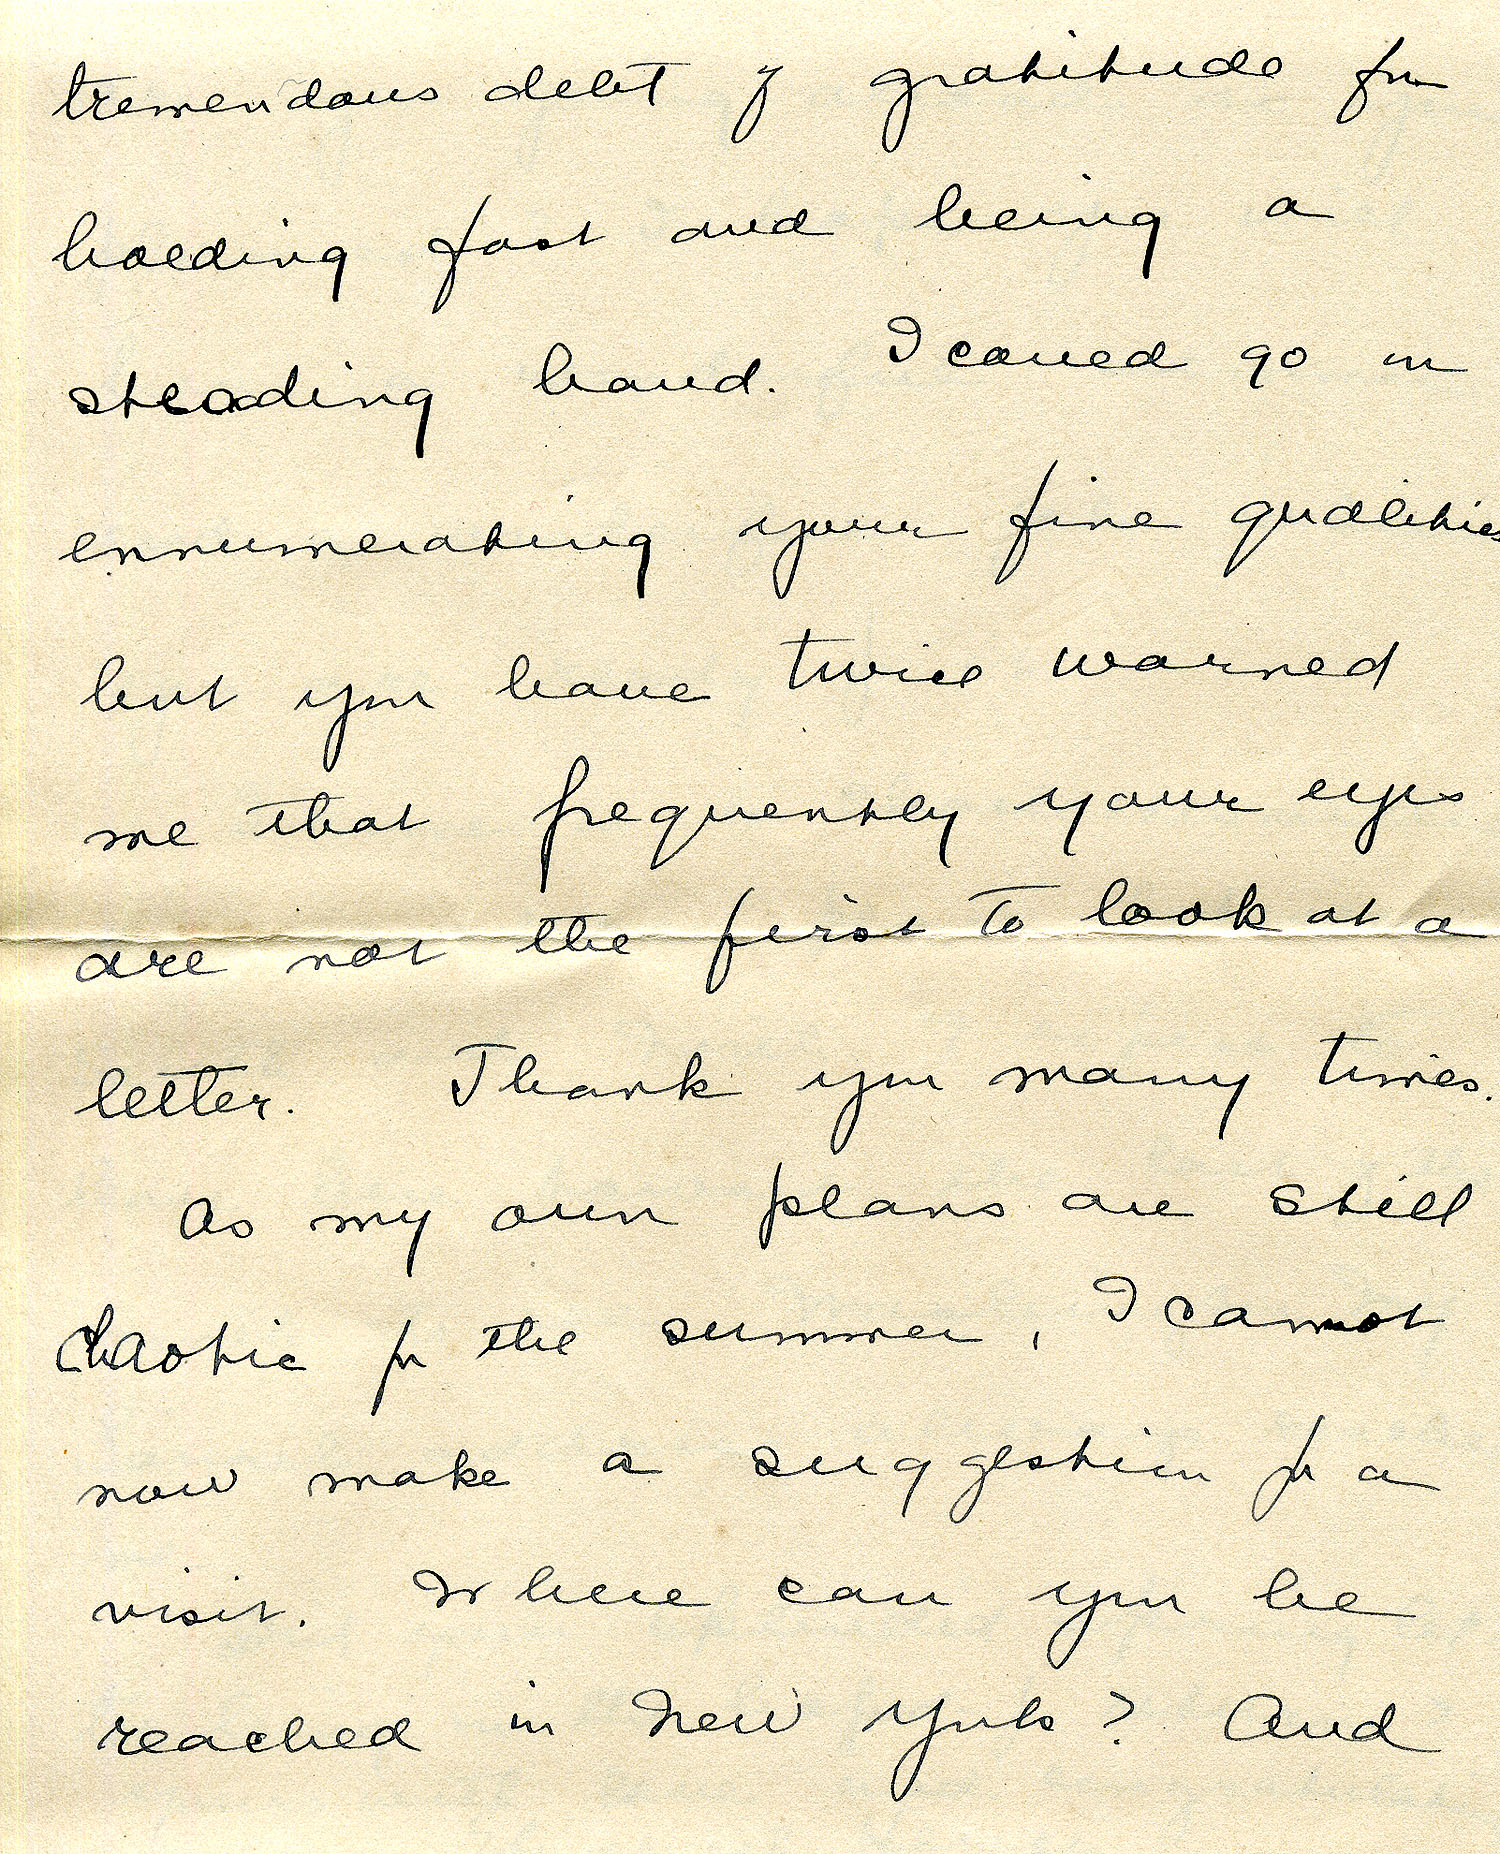 tremendous debt of gratitude for
holding fast and being a
steading hand. I could go on
ennumerating your fine qualities
but you have twice warned
me that frequently your eyes
are not the first to look at a
letter. Thank you many times.
As my own plans are still
chaotic for the summer, I cannot
now make a suggestion for a
visit. Where can you be
reached in New York? And